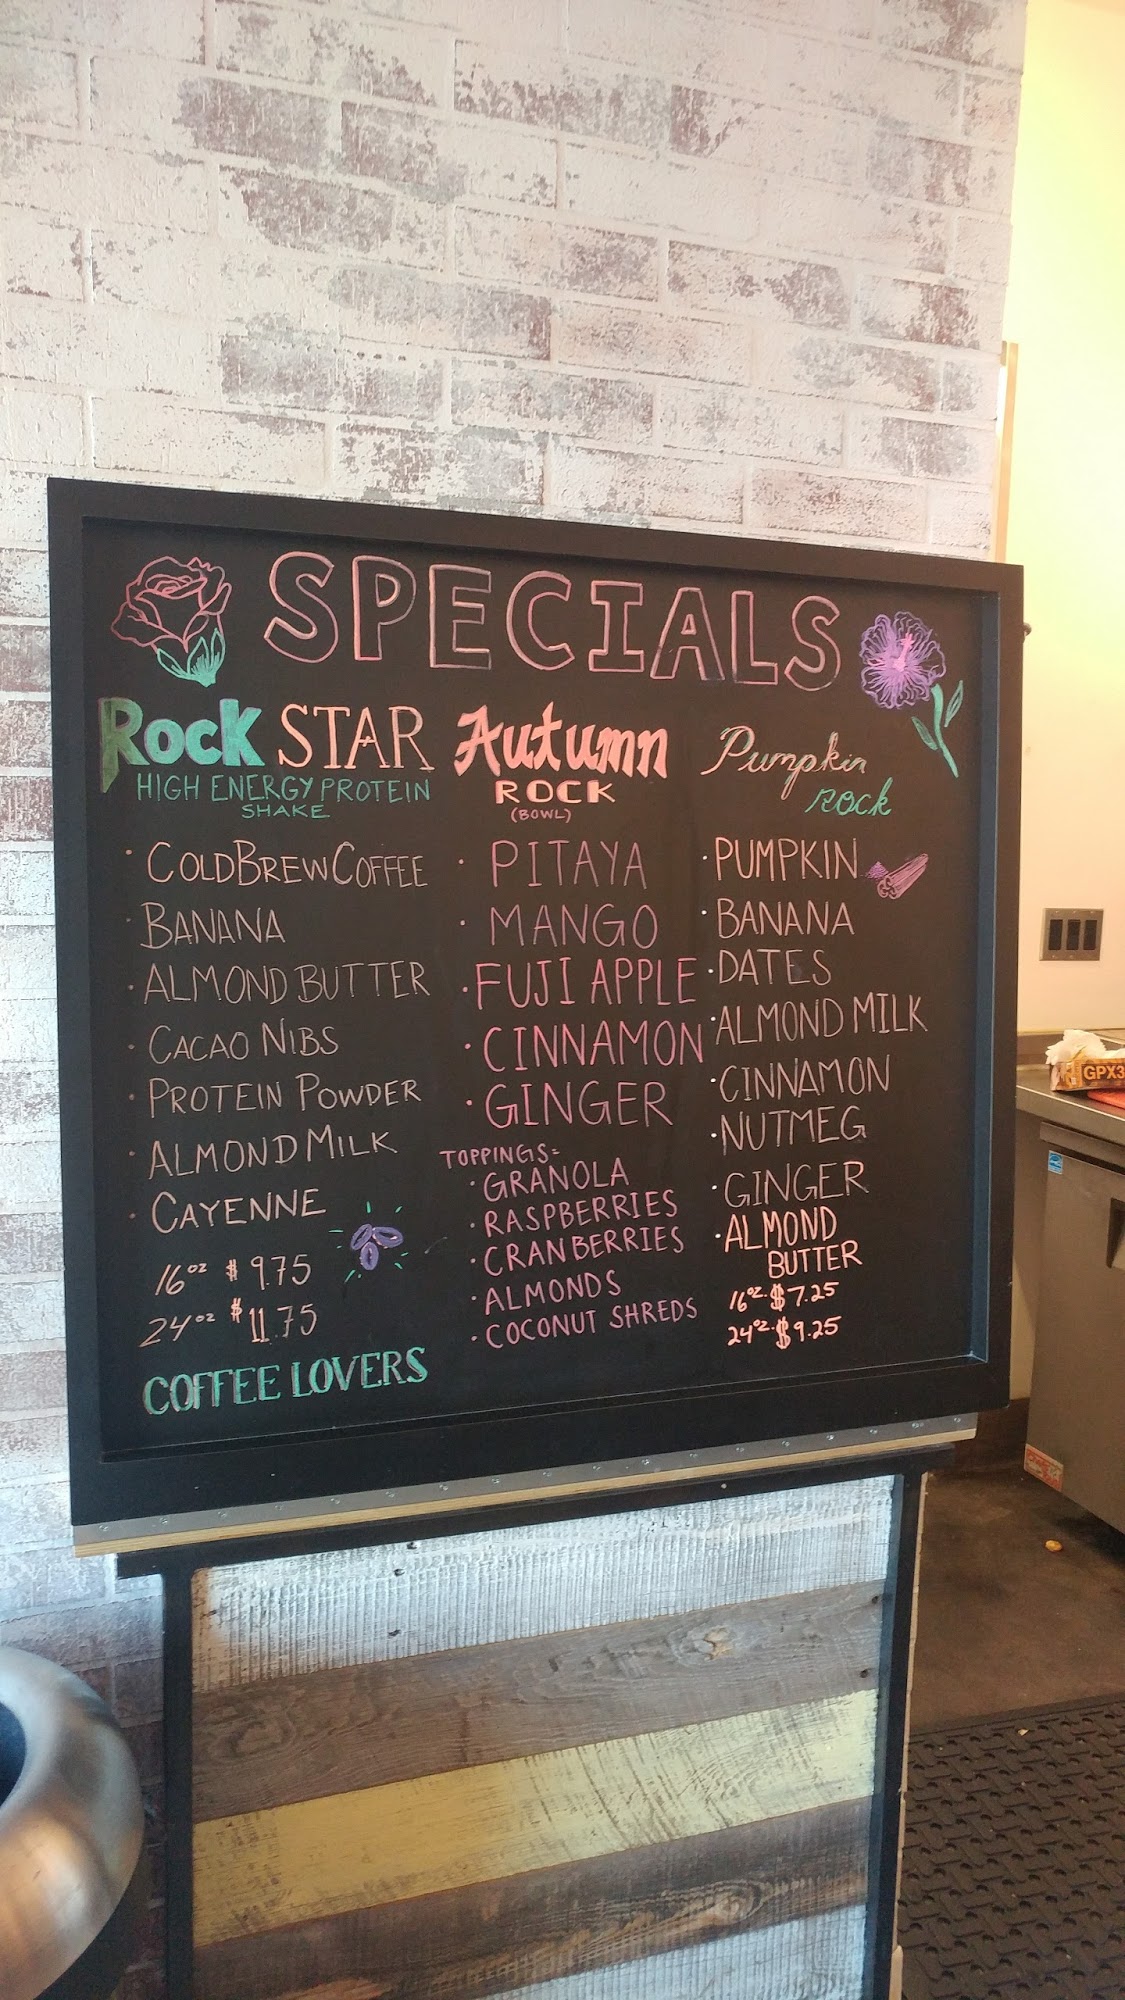 SPECIALS
Rock STAR
HIGH ENERGY PROTEIN
SHAKE
· COLD BREW COFFEE
· BANANA
· ALMOND BUTTER
· CACAO NIBS
· PROTEIN POWDER
· ALMOND MILK
· CAYENNE
16oz $9.75
24oz $11.75
COFFEE LOVERS
Autumn
ROCK
(BOWL)
· PITAYA
· MANGO
· FUJI APPLE
· CINNAMON
· GINGER
TOPPINGS=
· GRANOLA
· RASPBERRIES
· CRANBERRIES
· ALMONDS
· COCONUT SHREDS
Pumpkin
Rock
· PUMPKIN
· BANANA
· DATES
· ALMOND MILK
· CINNAMON
· NUTMEG
· GINGER
· ALMOND
BUTTER
16oz. $7.25
24oz. $9.25
GPX3